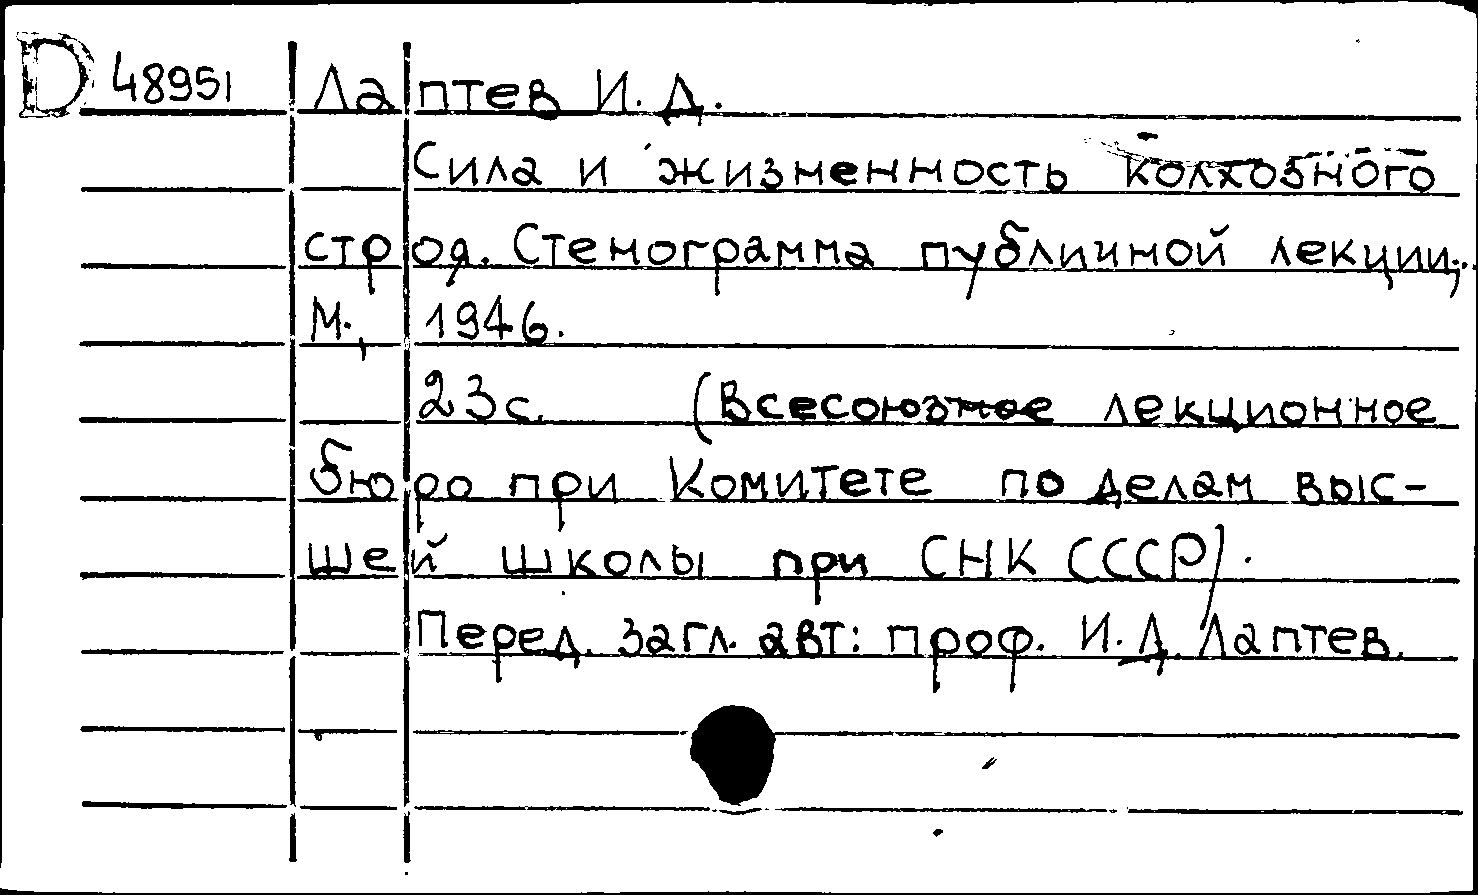 D 48951 Лаптев И. Д.
Сила и жизненность колхозного
строя. Стенограмма публичной лекции,..
М., 1946.
23 с. (Всесоюзное лекционное
бюро при Комитете по делам выс-
шей школы при СНК СССР).
Перед. загл. авт: проф. И. Д. Лаптев.